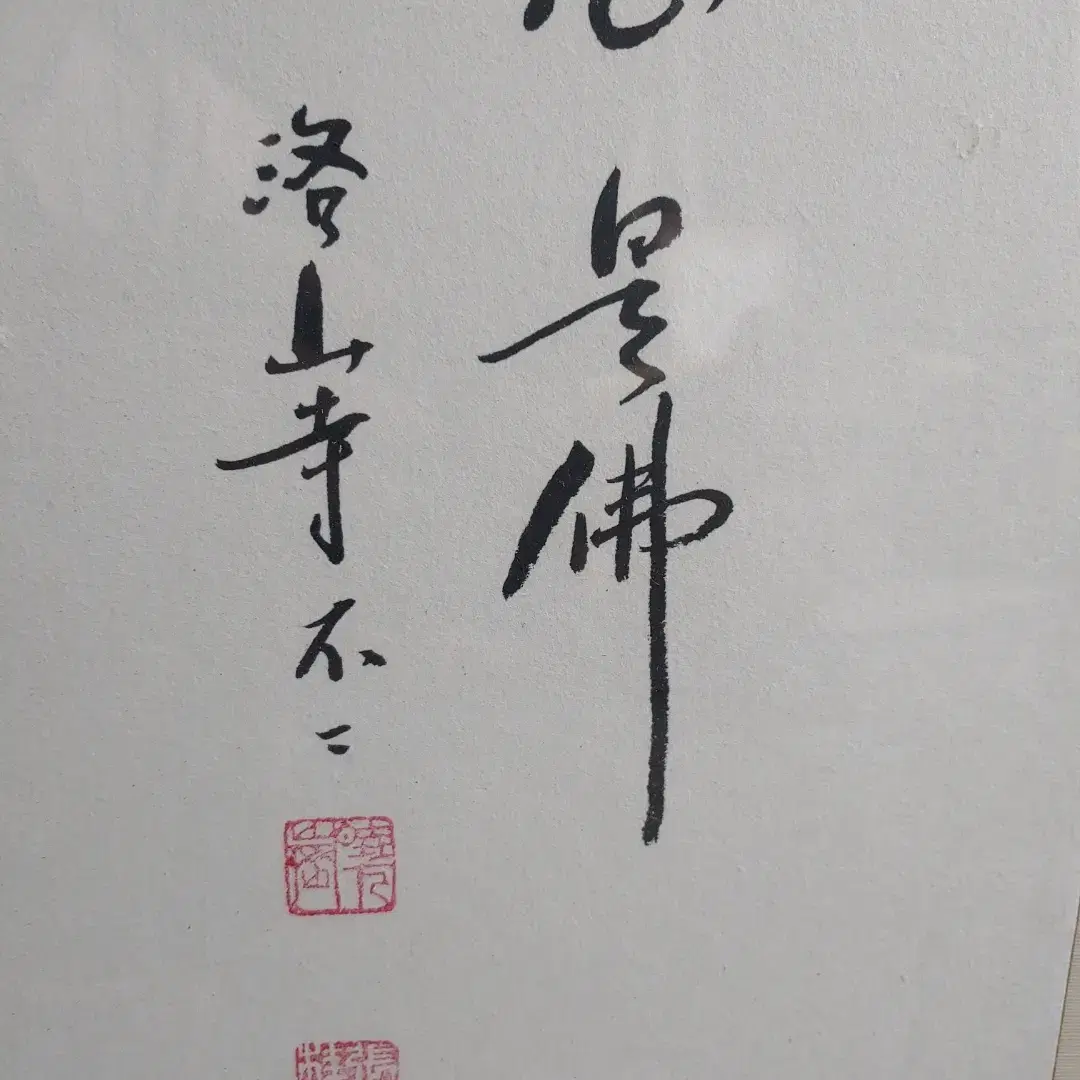 是佛
洛山寺不二